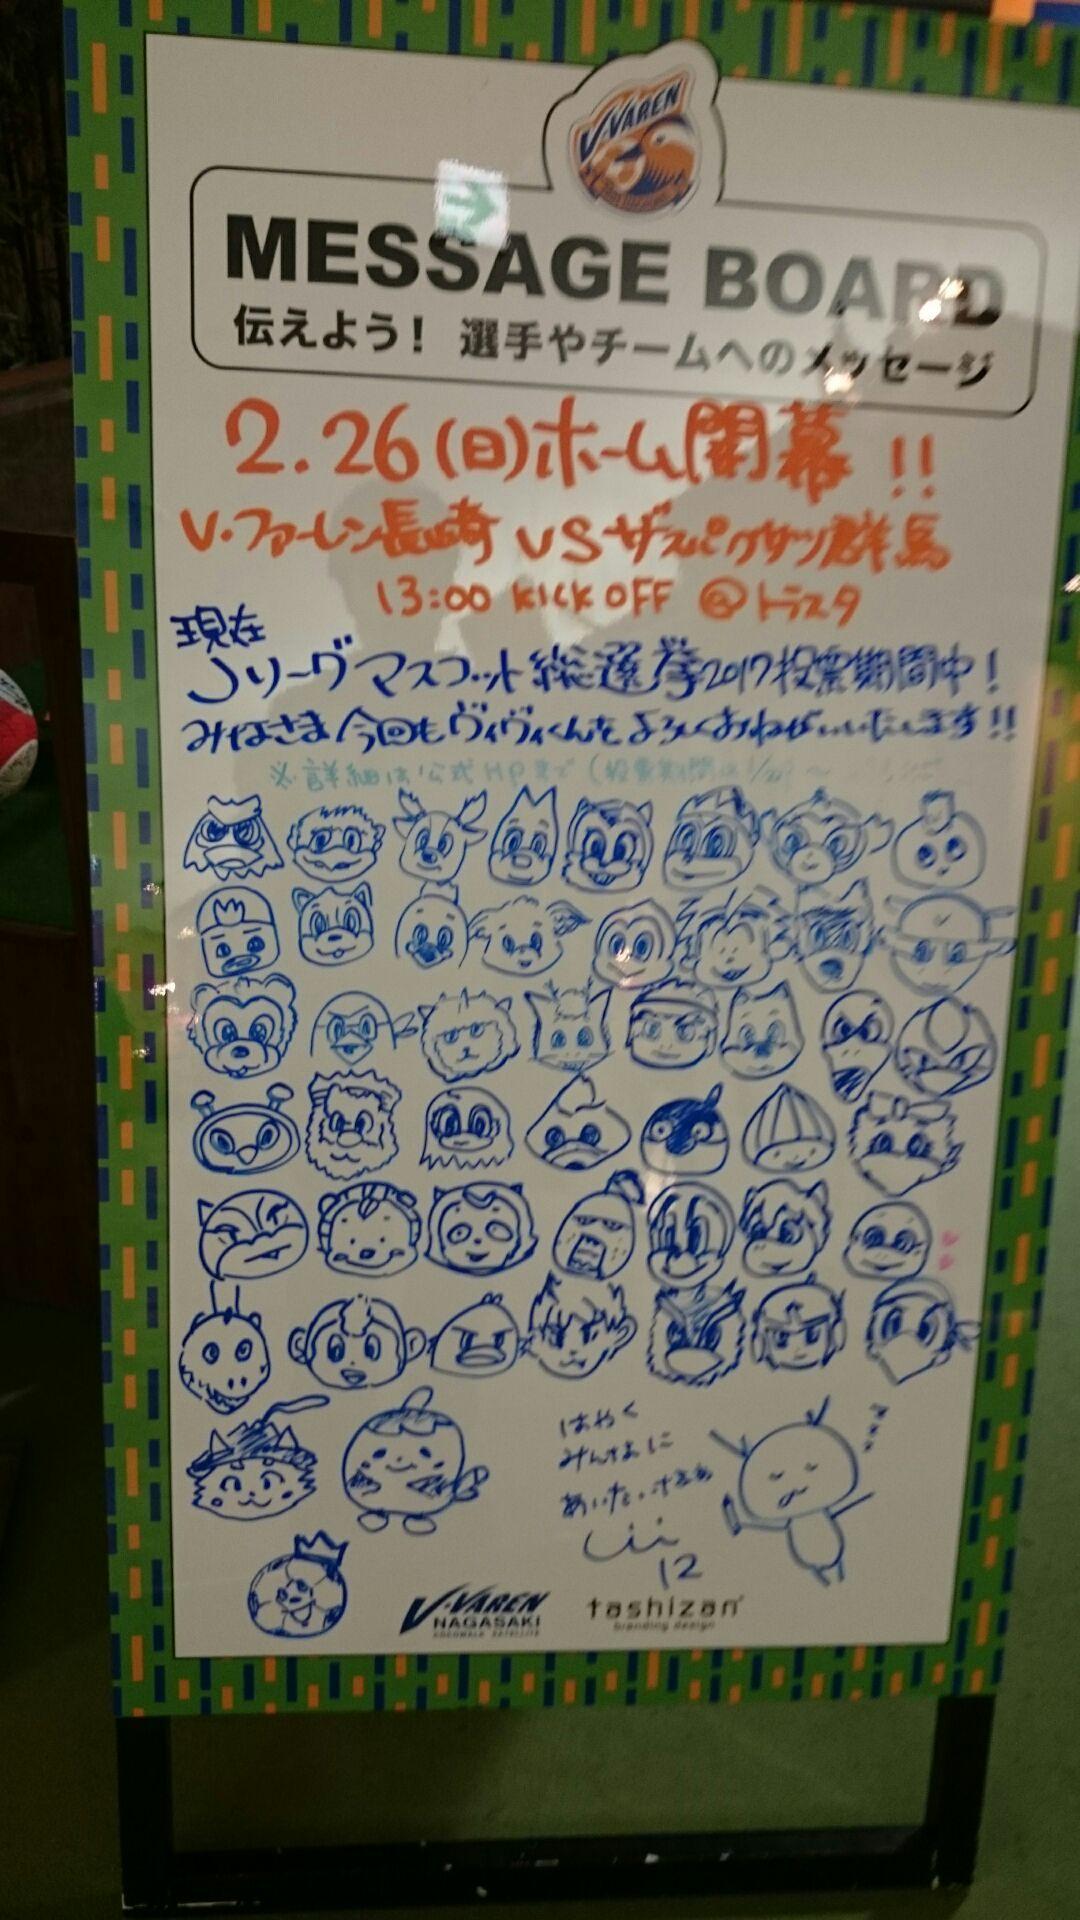 V·VAREN
MESSAGE BOARD
伝えよう! 選手やチームへのメッセージ
2.26(日)ホーム開幕!!
V・ファーレン長崎 VS ザスパクサツ群馬
13:00 KICK OFF @トラスタ
現在
Jリーグマスコット総選挙2017投票期間中!
みなさま今回もヴィヴィくんをよろしくおねがいいたします!!
※詳細は公式HPまで(投票期間は1/20~
はやく
みんなに
あいたい
12
V·VAREN NAGASAKI
tashizan
branding design